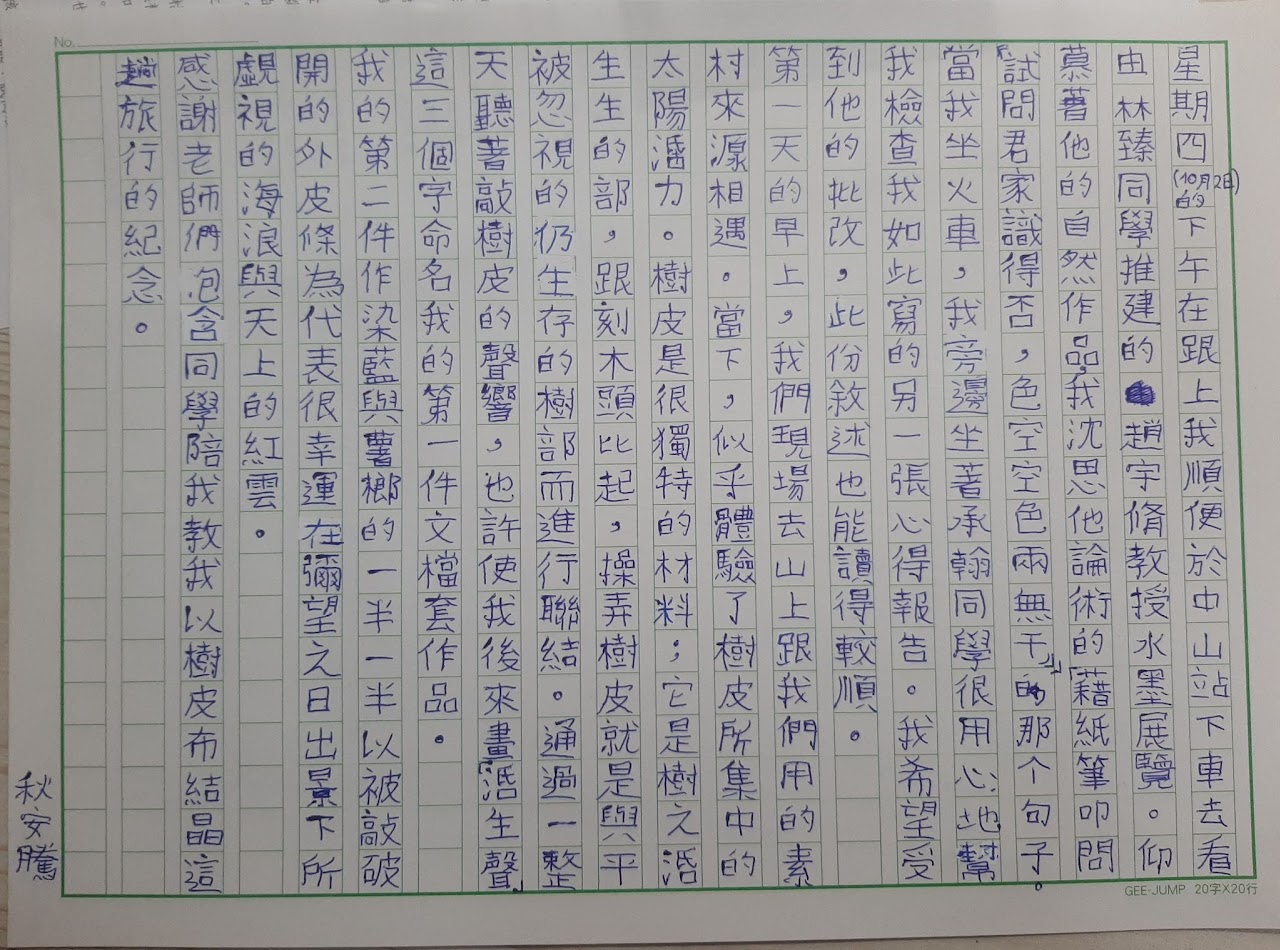 No.
星期四(10月2日)的下午在跟上我順便於中山站下車去看
由林臻同學推建的趙宇脩教授水墨展覽。仰
慕著他的自然作品,我沈思他論術的「藉紙筆叩問
試問君家識得否,色空空色兩無干」的那个句子。
當我坐火車,我旁邊坐著承翰同學很用心地幫
我檢查我如此寫的另一張心得報告。我希望受
到他的批改,此份敘述也能讀得較順。
第一天的早上,我們現場去山上跟我們用的素
村來源相遇。當下,似乎體驗了樹皮所集中的
太陽潘力。樹皮是很獨特的材料;它是樹之活
生生的部,跟刻木頭比起,操弄樹皮就是與平
被忽視的仍生存的樹部而進行聯結。通過一整
天聽著敲樹皮的聲響,也許使我後來畫「活生聲」
這三個字命名我的第一件文檔套作品。
我的第二件作染藍與薯榔的一半一半以被敲破
開的外皮條為代表很幸運在彌望之日出景下所
覷視的海浪與天上的紅雲。
感謝老師們包含同學陪我教我以樹皮布結晶這
趟旅行的紀念。
秋安騰
GEE-JUMP 20字X20行